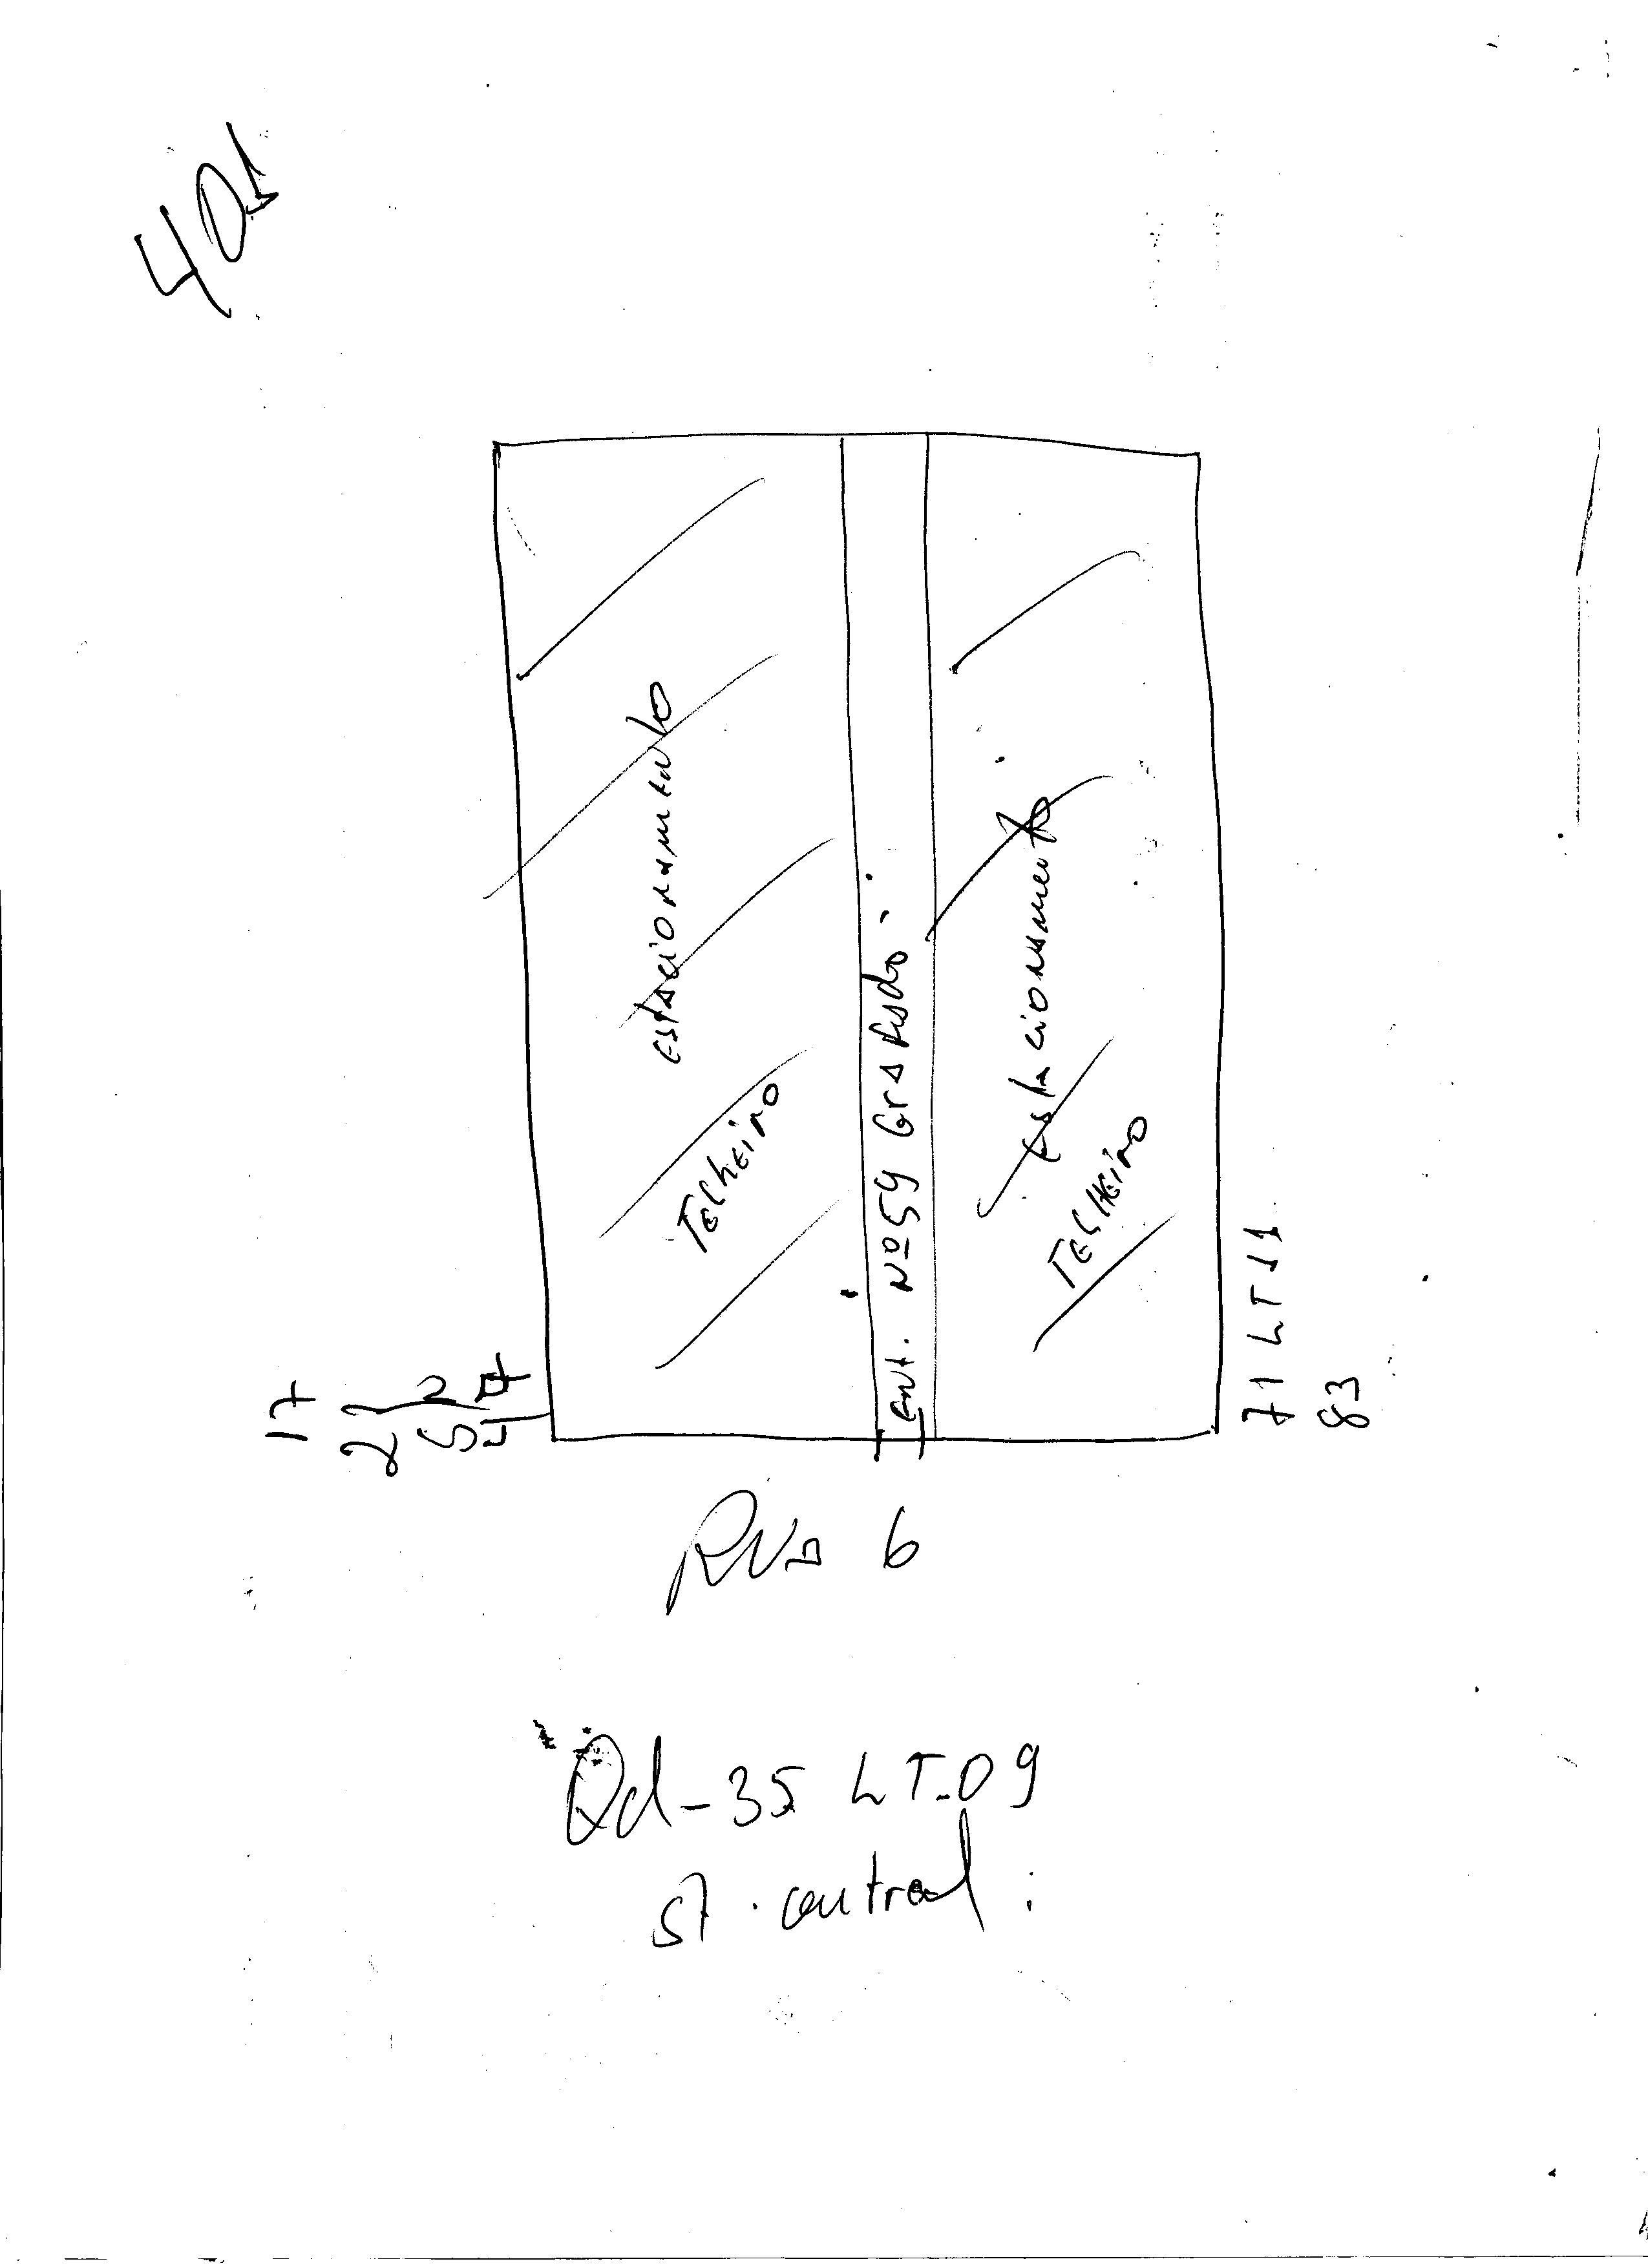 401
estacionamento
Telheiro
Ent. Nº 59 Gradado
estacionamento
Telheiro
17
71 LT 11
83
RUA 6
Qd-35 LT-09
st. central